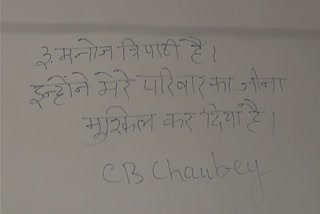 3. मनोज त्रिपाठी हैं।
इन्होंने मेरे परिवार का जीना
मुश्किल कर दिया है।
CB Chaubey